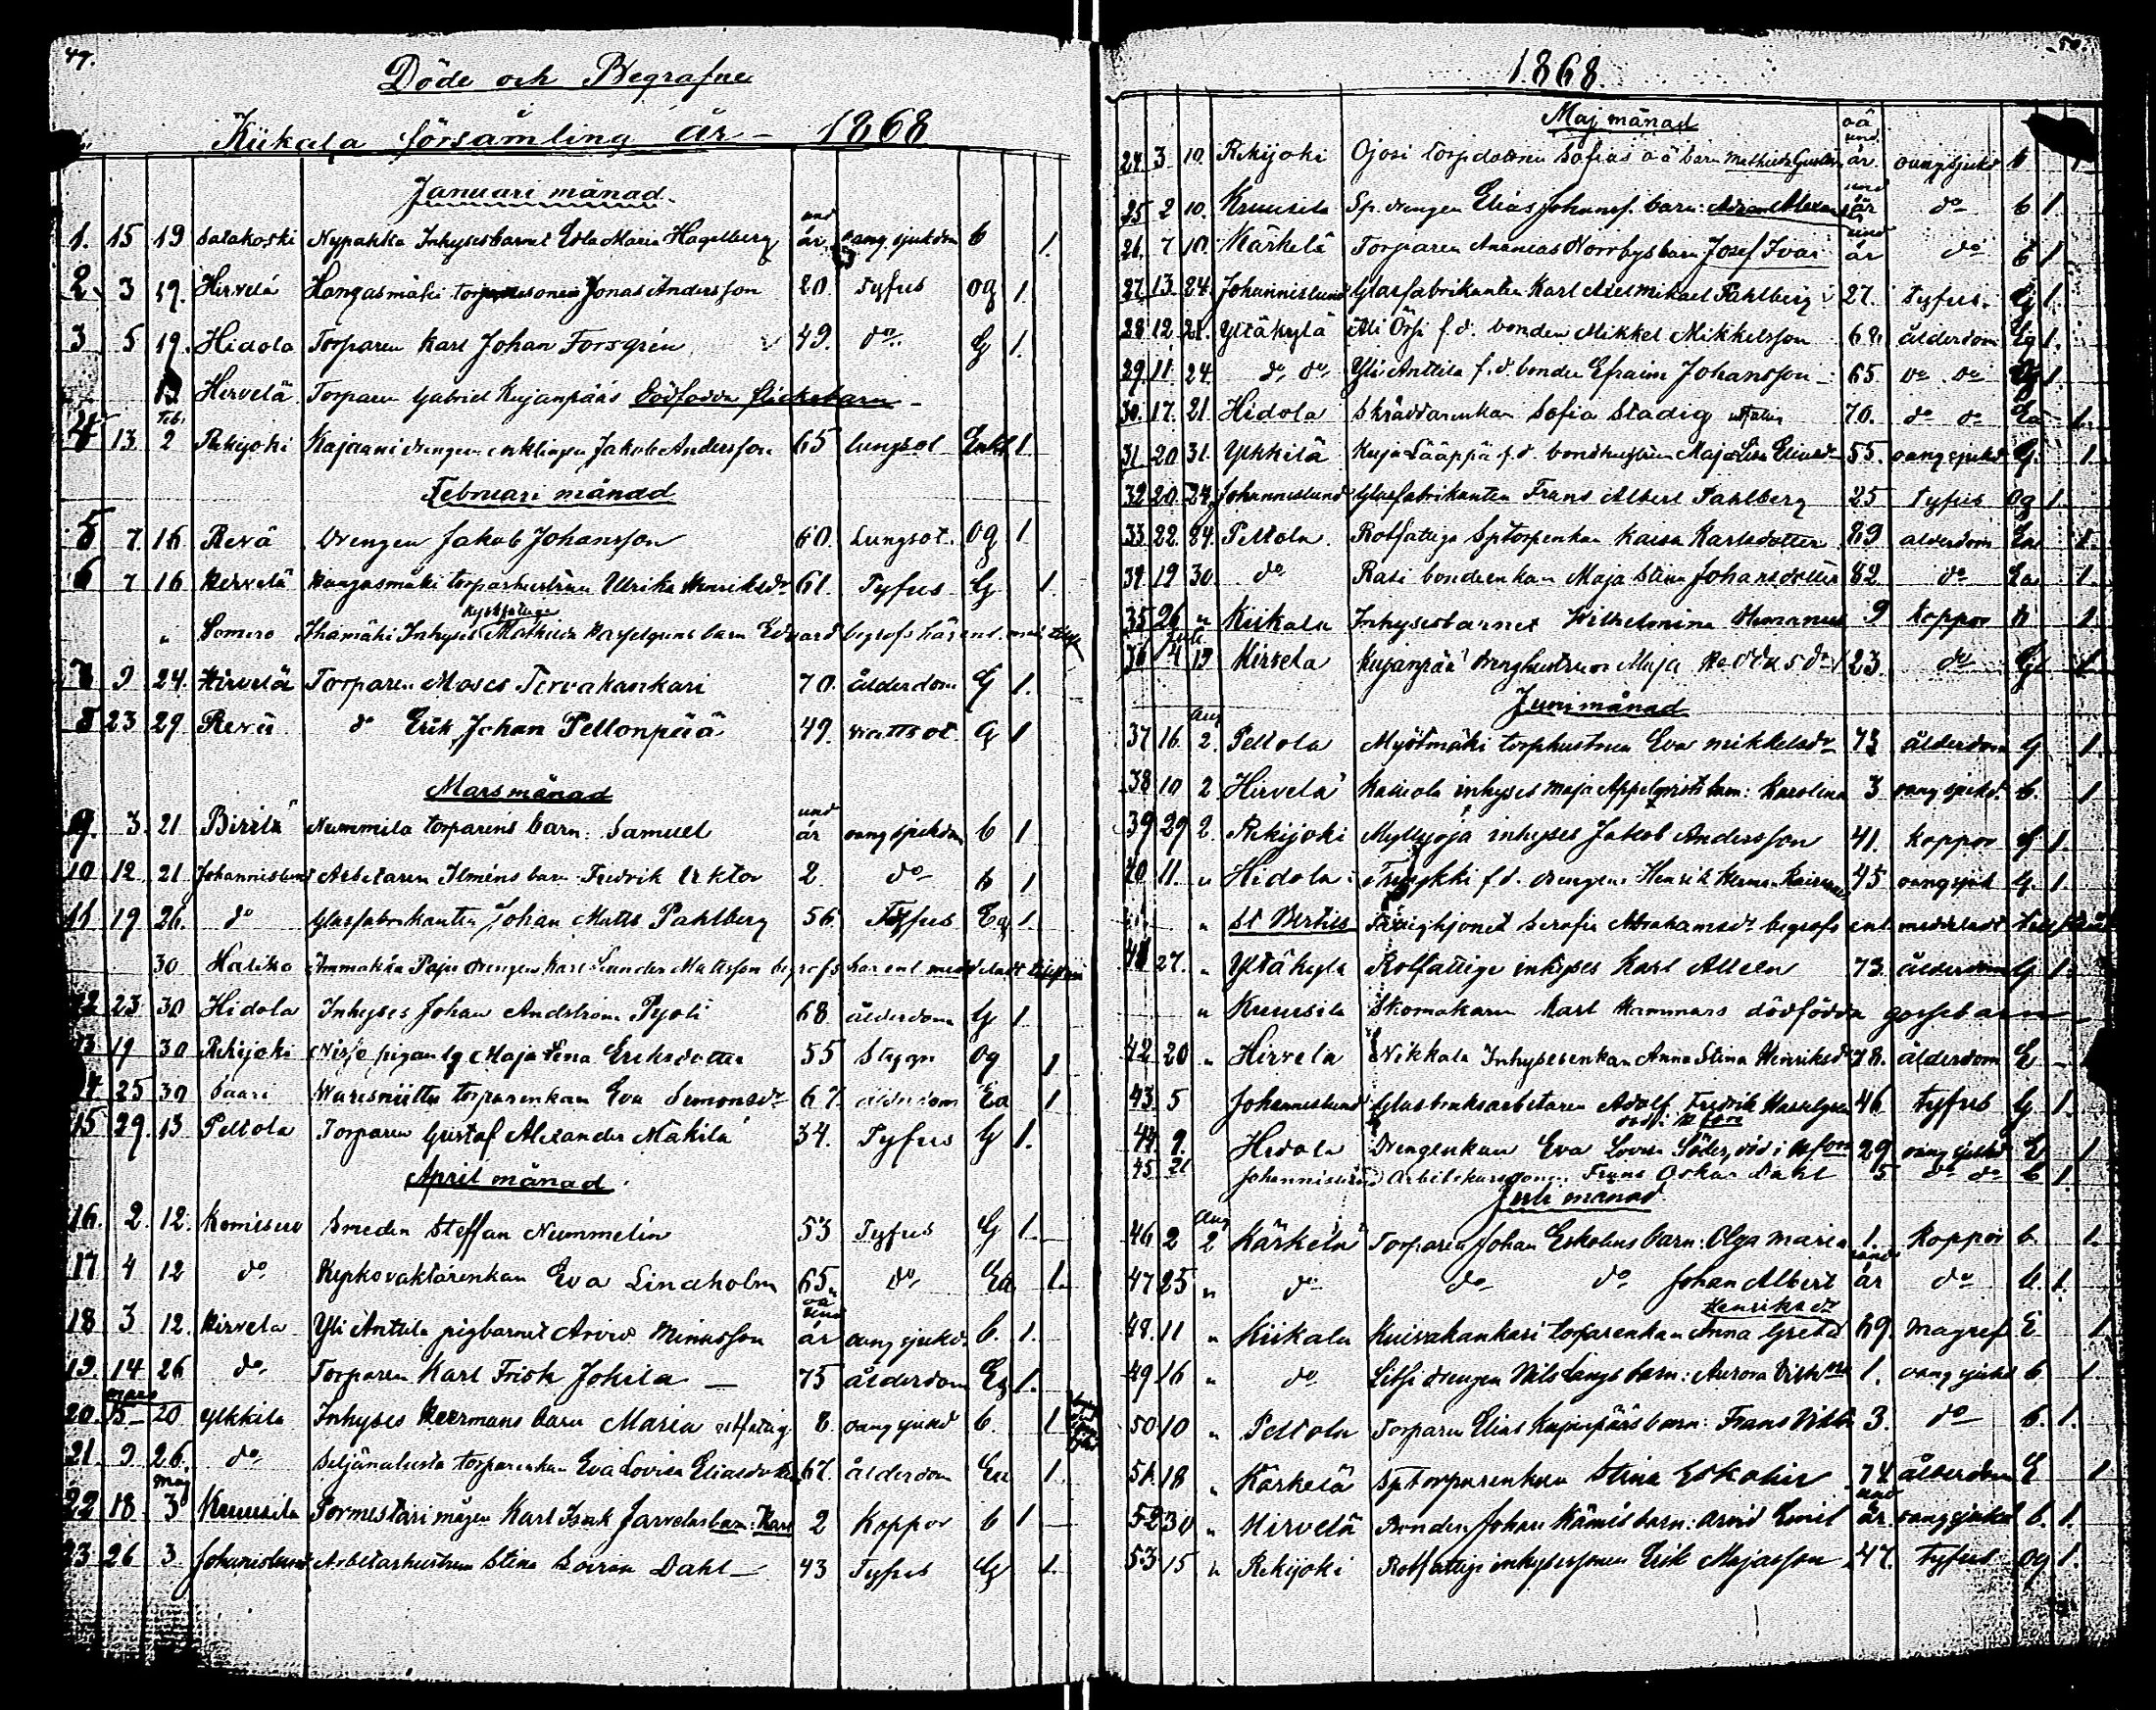 49.
Döde och Begrafne
i
Kiikala församling År - 1868
Januari månad
1. 15 19 Satakoski Nypakka Inhysesbarnet Edla Maria Hagelberg und år oang sjukdm b 1.
2. 3 19. Hirvelä Hangasmäki Jonas Andersson 20. Tyfus og 1.
3 5 19. Hidola Torparen Karl Johan Forsgrén 49. do G 1.
19 Hirvelä Torparen Gabriel Kujanpääs Dödfödda flickebarn -
4 13 Feb. 2 Rekijoki Kajaani drengen enklingen Jakob Andersson 65 lungsot Enkl 1
Februari månad
5 7. 16 Rerä Drengen Jakob Johansson 60. Lungsot. og 1
6 7 16 Hirvelä Kangasmäki torparhustrun Ulrika Henriksdr 61. Tyfus G 1.
" Somero Ihamäki Inhyses Mathilda barn Edvard begrofs här enl.
7 9 24. Hirvelä Torparen Moses Tervakankari 70. ålderdom G 1.
8 23 29. Rerä do Erik Johan Pellonpää 49. Vattsot G 1
Mars månad
9. 3. 21 Birilä Nummila torparens barn: Samuel und år oang sjukdm b 1
10 12. 21 Johannislund Arbetaren Ilméns barn Fredrik Viktor 2. do b 1
11 19 26. do Glasfabrikanten Johan Matts Pahlberg 56. Tyfus Eg 1.
30 Haliko Ammakka Paju drengen Karl Leander Matsson begrofs här enl.
12 23. 30 Hidola Inhyses Johan Andström Pyoli 68 ålderdom G 1
13 19 30 Rekijoki pigan Maja Lena Eriksdotter 55 Styng og 1
14. 25 30 Saari Waresniittu torparenkan Eva Simonsdr 67. ålderdom Ea 1
15 29. 13 Peltola Torparen Gustaf Alexander Mäkilä 34. Tyfus G 1.
April månad.
16. 2. 12. Komisuo Smeden Steffan Nummelin 53 Tyfus G 1.
17 4 12 do Kyrkovaktarenkan Eva Lindholm 65. do Ea 1.
18 3 12. Hirvela Yli Anttila pigbarnet Arvid Minasson oä und år oang sjukd. b. 1.
19. 14 26 do Torparen Karl Frisk Jokila - 75 ålderdom Eg 1.
20. mars 15 - 20 Ykkilä Inhyses Heermans barn Maria 8. oang sjukd b. 1
21. 9 26. do torparenkan Eva Lovisa Eliasdotter 67. ålderdom Ea 1.
22 18. Maj 3 Kruusila Pormestari mågen Karl Isak Jarvelas barn: Karl 2 Koppor b 1
23 26 3. Johannislund Arbetarhustrun Stina Dahl - 43 Tyfus G 1.
1868.
Maj månad
24. 3 10. Rekijoki Ojosi torpdottren Sofias oä barn Mathilda oä und. år. oang sjukd b 1
25 2 10. Kruusila Sp. drengen Elias Johanss. barn: und år do b 1.
26. 7 10. Kärkelä Torparen Ananias Norrbys barn Josef Ivar und år do b 1.
27. 13 24. Johannislund Glasfabrikanten Karl Axel Mikael Pahlberg 27. Tyfus. G 1.
28 12 24. Yltäkylä f.d. bonden Mikkel Mikkelsson 68. ålderdom Eg 1.
29. 11 24. do do Yli Anttila f.d. bonden Efraim Johansson - 65. do do 1
30. 17. 21. Hidola Skräddarenkan Sofia Stadig 70. do do Ea 1.
31 20 31. Ykkilä Kuja Lääppä f.d. bondhustrun Maja Lisa Eliasdr 55. oang sjukd G. 1.
32 20. 24. Johannislund Glasfabrikanten Frans Albert Pahlberg 25 Tyfus og 1.
33 22. 24. Peltola Rotfattiga Sptorpenkan Kaisa Karlsdotter 89 ålderdom Ea 1.
34. 19 30. do Rasi bondeenkan Maja Stina Johansdotter 82. do Ea 1.
35 26 " Kiikala Inhysesbarnet Wilhelmina 9 Koppor b 1.
36 4 13 Hirvela Kujanpää drenghustrun Maja 23. do G 1
Juni månad
37 16. Aug 2. Peltola Myötmäki torphustrun Eva Mikkelsdr 73 ålderdom G 1.
38 10 2 Hirvelä inhyses Maja Appelqvists barn: Karolina 3 oang sjukd. b. 1
39 29 2. Rekijoki Myllyoja inhyses Jakob Andersson 41. Koppor G 1.
40 11. " Hidola f.d. drengen Henrik Herman 45 oang sjuk G. 1.
" St Bertils Serafia Abrahamsdr begrofs enl meddeladt
41 27. " Yltäkylä Rotfattige inhyses Karl 73. ålderdom G 1.
" Kruusila Skomakaren Karl Hammars dödfödda gossebarn
42 20 " Hirvela Nikkala Inhysesenkan Anna Stina Henriksdr 78. ålderdom E -
43. 5 Johannislund Glasbruksarbetaren Adolf Fredrik 46 Tyfus G 1.
44 9. Hidola Drengenkan Eva Lovisa Söder, död i 29 oang sjukd E 1
45 21 Johannislund Arbetskarlsonen Frans Oskar Dahl 5 do do b 1.
Juli månad
46 2 Aug 2 Kärkelä Torparen Johan Eskolins barn: Olga Maria 1. Koppor b. 1.
47 25 " do do do Johan Albert und år do b. 1.
48. 11 " Kiikala torparenkan Anna Greta Henriksdr 69. Magref E 1
49 16 " do drengen Nils Längs barn: Aurora 1. oang sjukd b 1.
50 10 " Peltola Torparen Elias Kujanpääs barn: Frans Viktor 3. do b. 1.
51. 18 " Kärkelä Sptorparenkan Stina Eskolin 74. ålderdom E 1
52 30 " Hirvelä Bonden Johan barn: Arvid Emil und år. oang sjukd b. 1.
53 15 " Rekijoki Rotfattige inhysessonen Erik Majasson 47. Tyfus og 1.